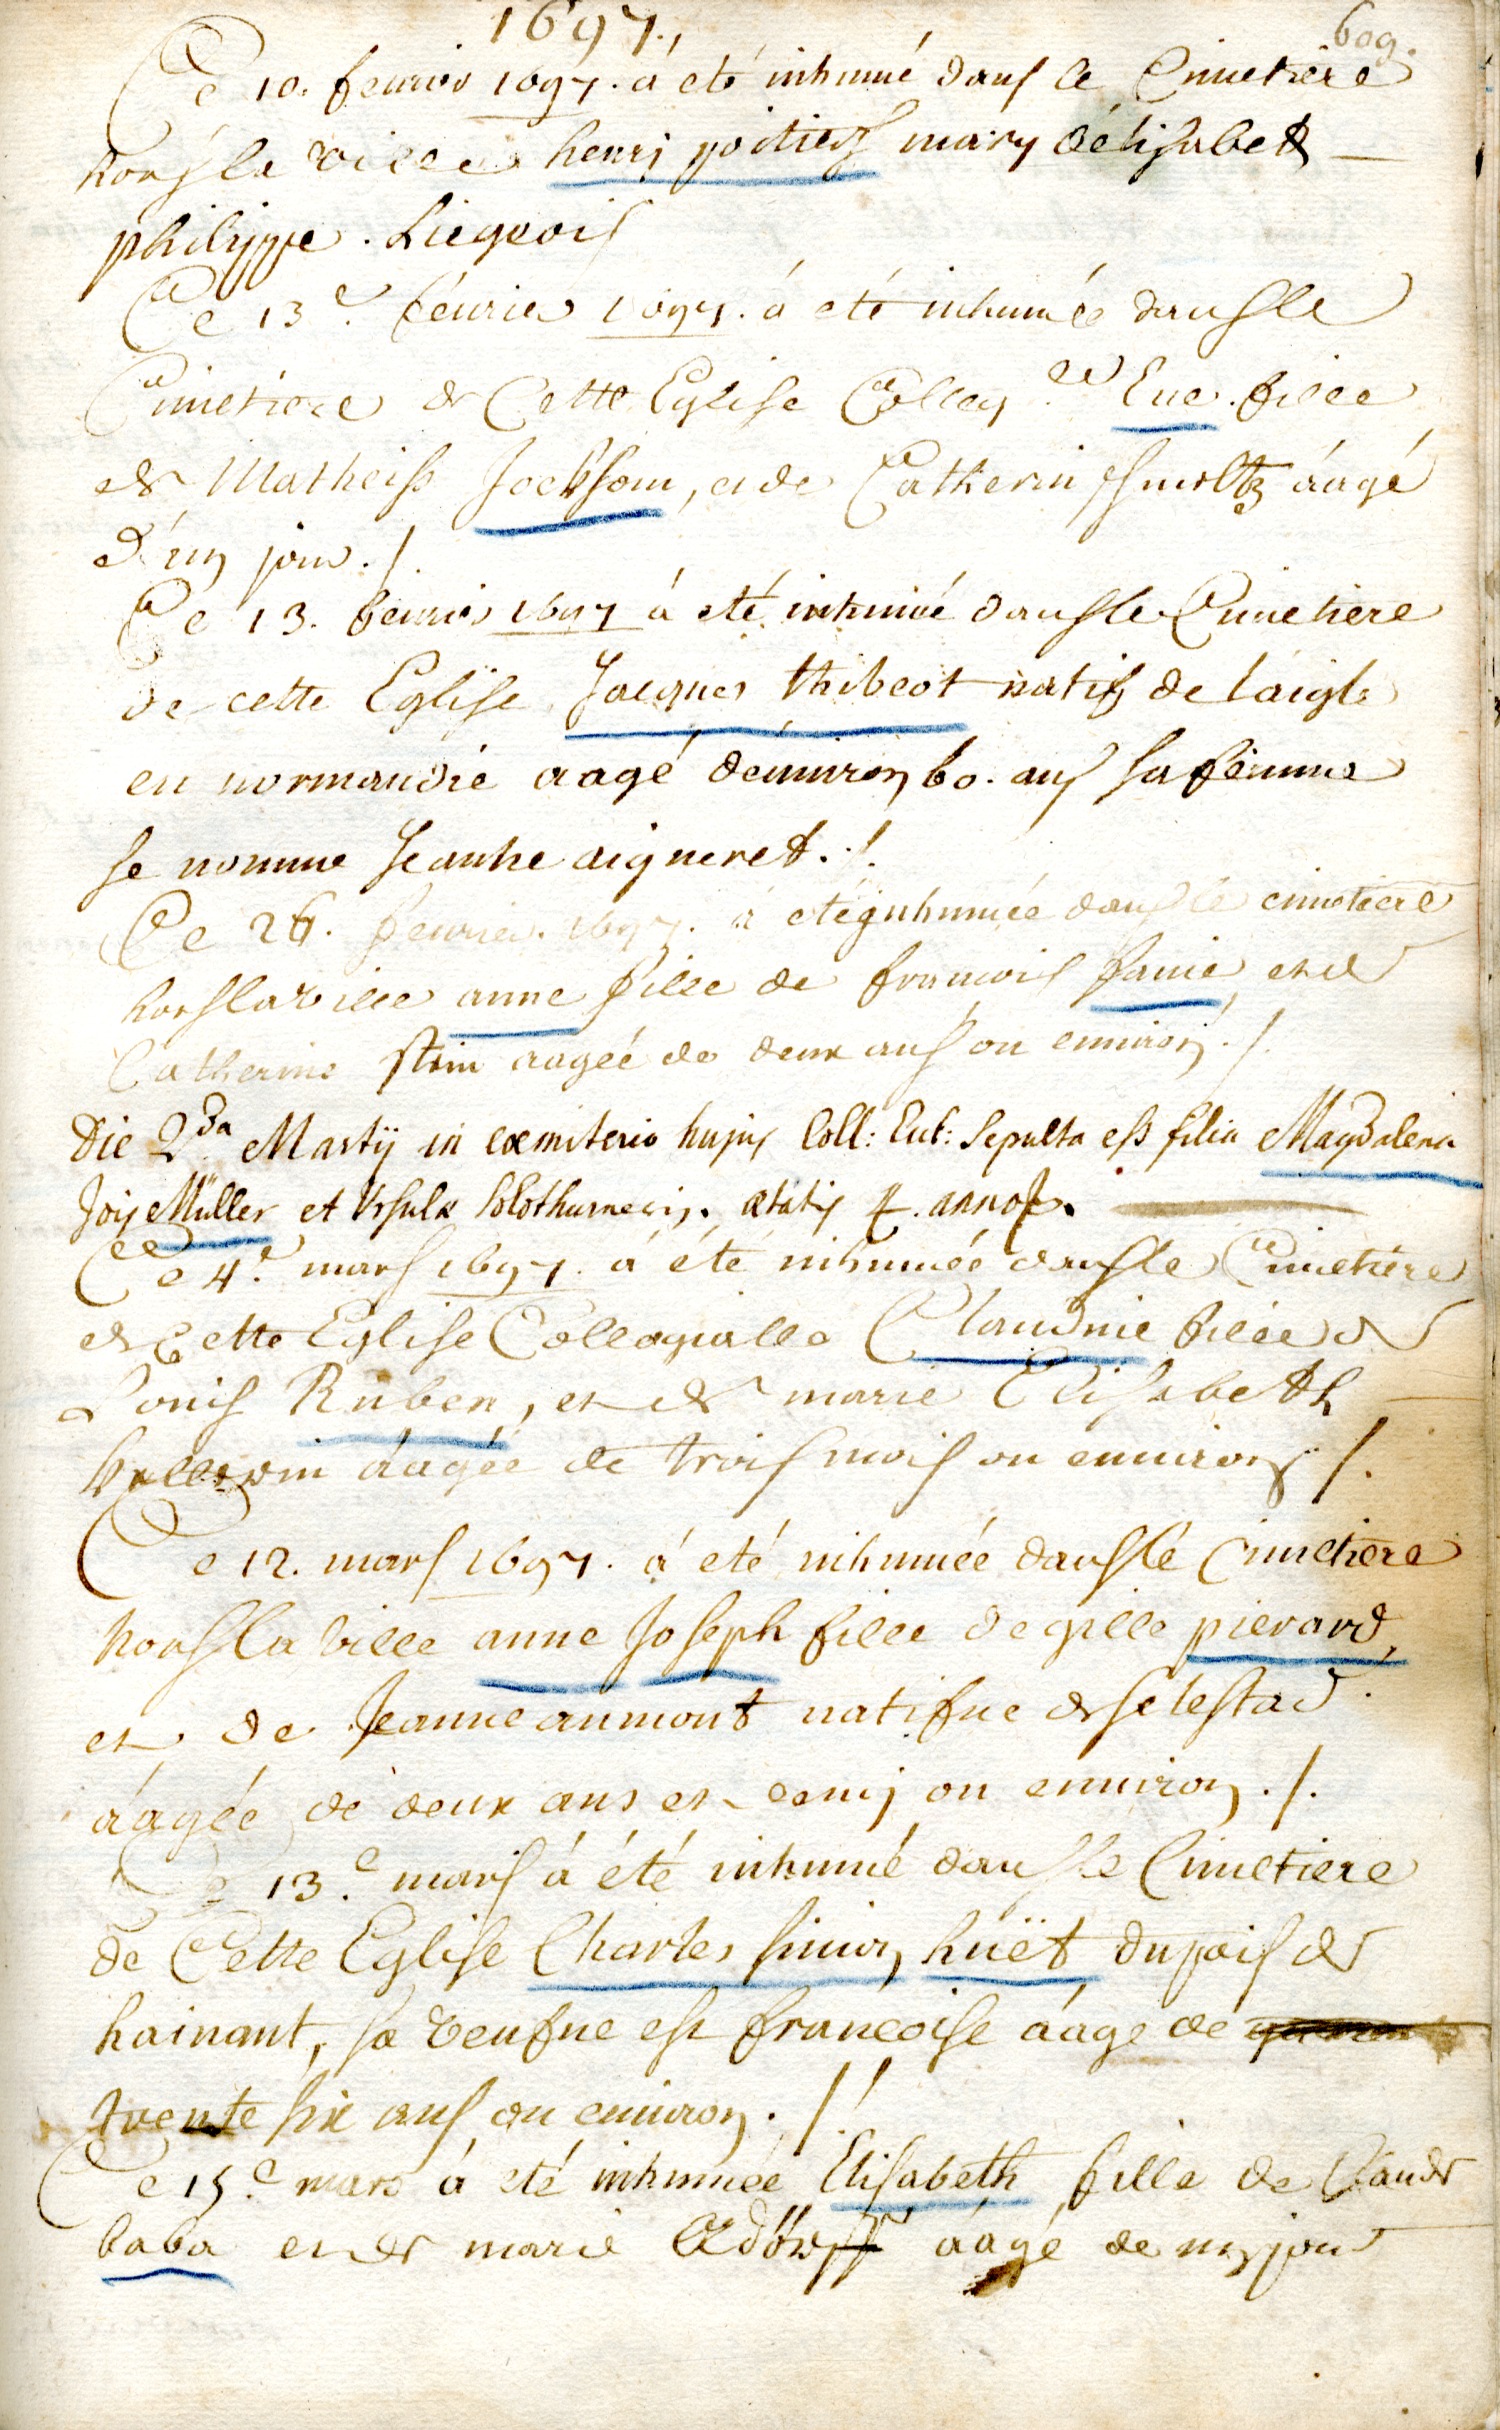 1697.
609.
Ce 10. feurier 1697. á eté inhumé dans le Cimetiere
hors la ville henrj poitiers mary d'élisabeth
philippe. Liegeois
Ce 13e. féurier 1697. á eté inhumée dans le
Cimetiere de Cette Eglise Colleg Eue. fille
de Matheiss Jocksom, et de Catherin áagé
d'un jour ./.
Ce 13. feurier 1697 á eté inhumé dans le Cimetiere
de cette Eglise Jacques thibeot natif de laigle
en normandie aagé denuiron 60. ans sa femme
se nomme Jeanne aigneret ./.
Ce 26. feurier. 1697. á eté ynhumée dans le cimetiere
hors la ville anne fille de francois et de
Catherine stein aagée de deux ans ou enuiron ./.
Die 2da Martÿ in cœmiterio hujus Coll: Eccl: Sepulta est filia Magdalena
Jois Müller et Ursulæ ætatis 4. annor.
Ce 4e. mars 1697. á été inhumée dans le Cimetiere
de Cette Eglise Collegialle Claudine fille de
Louis Ruben, et de marie Elisabeth
áagée de trois mois ou enuiron ./.
Ce 12. mars 1697. á eté inhumée dans le Cimetiere
hors la ville anne Joseph fille de gille pierard,
et de Jeanne aumont natifue de selestad
áagée de deux ans et demj ou enuiron ./.
Ce 13e. mars á été inhumé dans le Cimetiere
de Cette Eglise Charles simon huët du païs de
hainaut, sa veufue est francoise áagé de
trente six ans ou enuiron ./.
Ce 15e. mars á eté inhumée Elisabeth fille de Claude
baba et de marie áagé de un jour